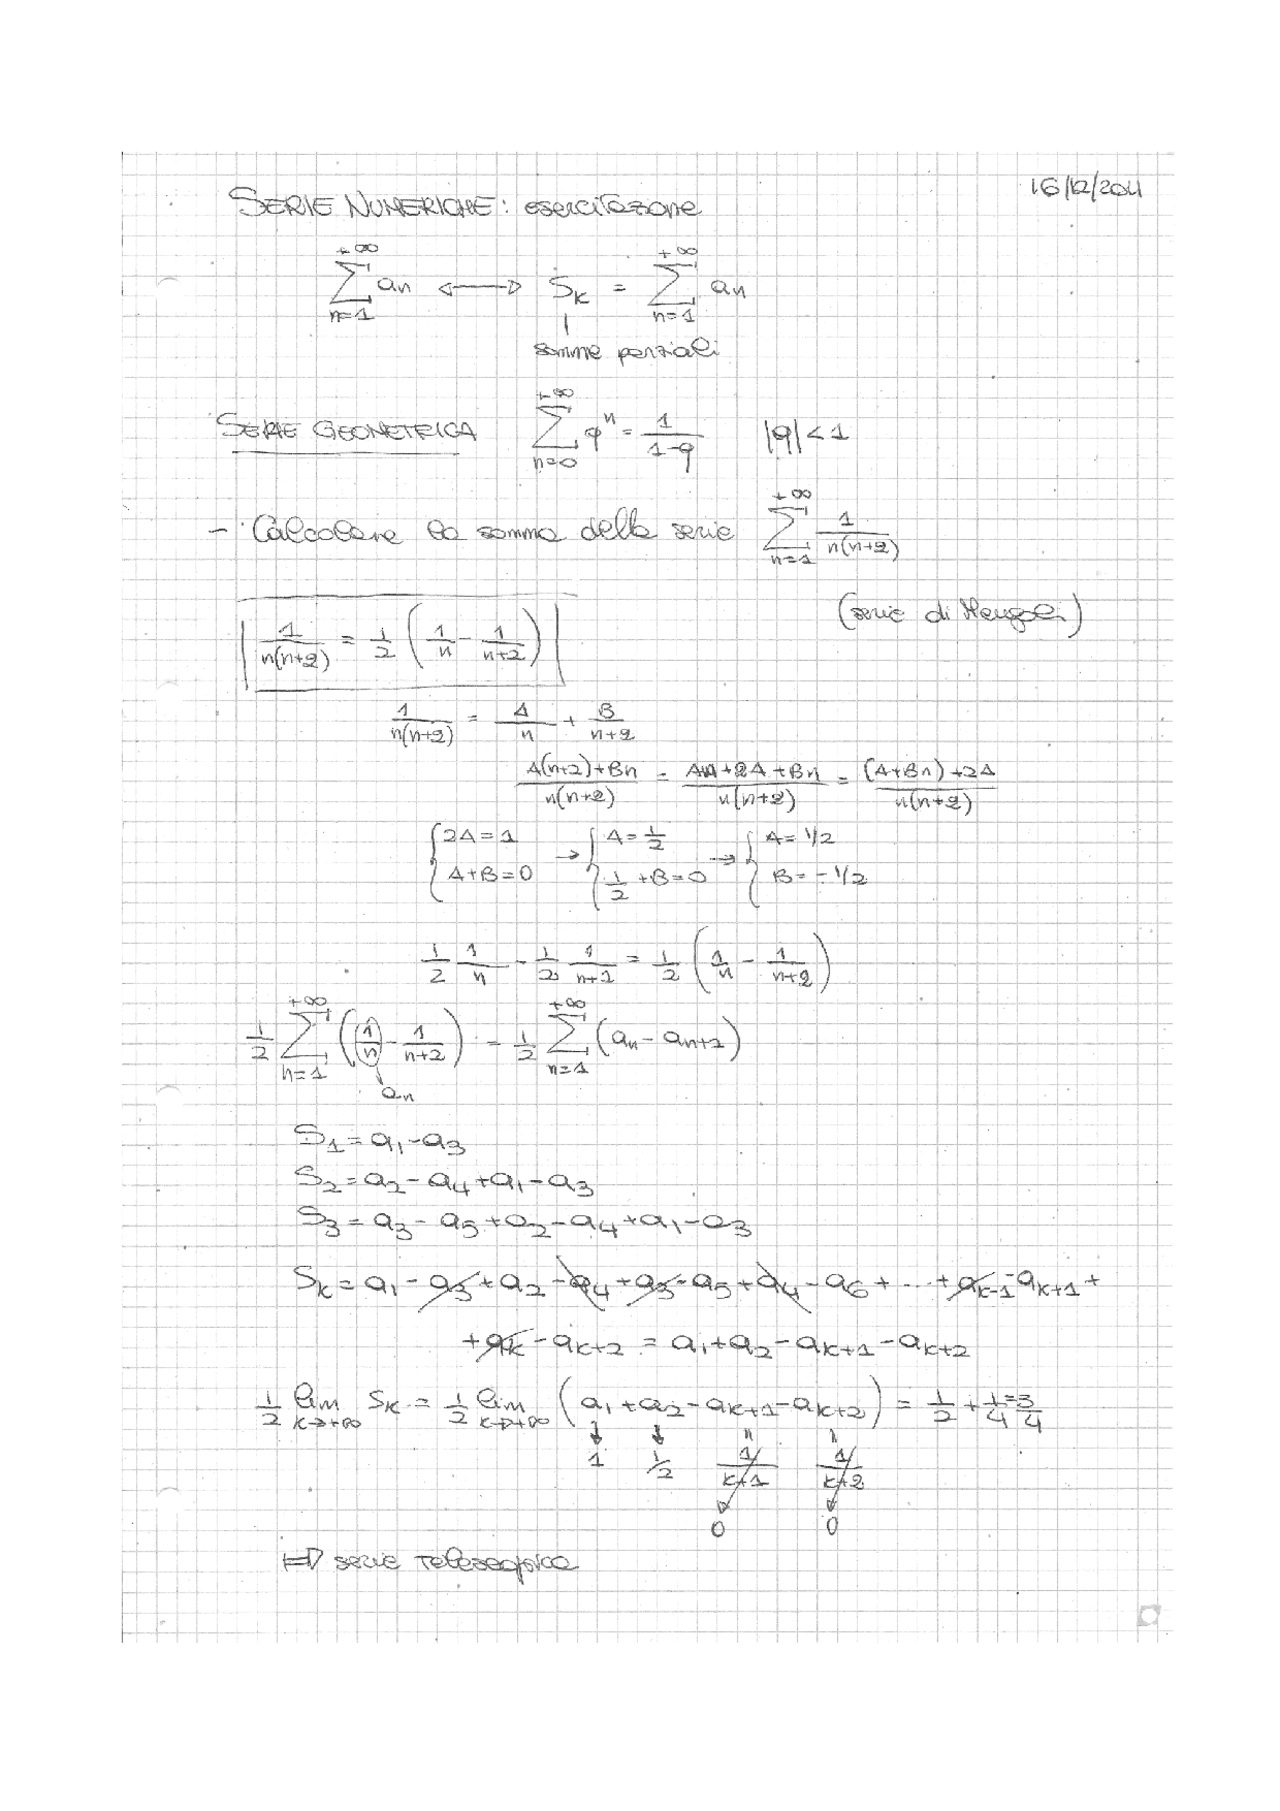 16/12/2011
SERIE NUMERICHE: esercitazione
\sum_{n=1}^{+∞} a_n ⟷ S_k = \sum_{n=1}^{+∞} a_n
somme parziali
SERIE GEOMETRICA \sum_{n=0}^{+∞} q^n = \frac{1}{1-q} |q|<1
- Calcolare la somma della serie \sum_{n=1}^{+∞} \frac{1}{n(n+2)}
(serie di Mengoli)
\frac{1}{n(n+2)} = \frac{1}{2} (\frac{1}{n} - \frac{1}{n+2})
\frac{1}{n(n+2)} = \frac{A}{n} + \frac{B}{n+2}
\frac{A(n+2)+Bn}{n(n+2)} = \frac{An+2A+Bn}{n(n+2)} = \frac{(A+Bn)+2A}{n(n+2)}
{2A=1 → {A=\frac{1}{2} → {A=1/2
{A+B=0 {\frac{1}{2}+B=0 {B=-1/2
\frac{1}{2} \frac{1}{n} - \frac{1}{2} \frac{1}{n+2} = \frac{1}{2} (\frac{1}{n} - \frac{1}{n+2})
\frac{1}{2} \sum_{n=1}^{+∞} (\frac{1}{n} - \frac{1}{n+2}) = \frac{1}{2} \sum_{n=1}^{+∞} (a_n - a_{n+2})
a_n
S_1 = a_1 - a_3
S_2 = a_2 - a_4 + a_1 - a_3
S_3 = a_3 - a_5 + a_2 - a_4 + a_1 - a_3
S_k = a_1 - a_3 + a_2 - a_4 + a_3 - a_5 + a_4 - a_6 + ... + a_{k-1} - a_{k+1} +
+ a_k - a_{k+2} = a_1 + a_2 - a_{k+1} - a_{k+2}
\frac{1}{2} lim_{k→+∞} S_k = \frac{1}{2} lim_{k→+∞} (a_1 + a_2 - a_{k+1} - a_{k+2}) = \frac{1}{2} + \frac{1}{4} = \frac{3}{4}
1 \frac{1}{2} \frac{1}{k+1} \frac{1}{k+2}
0 0
⇒ serie telescopica